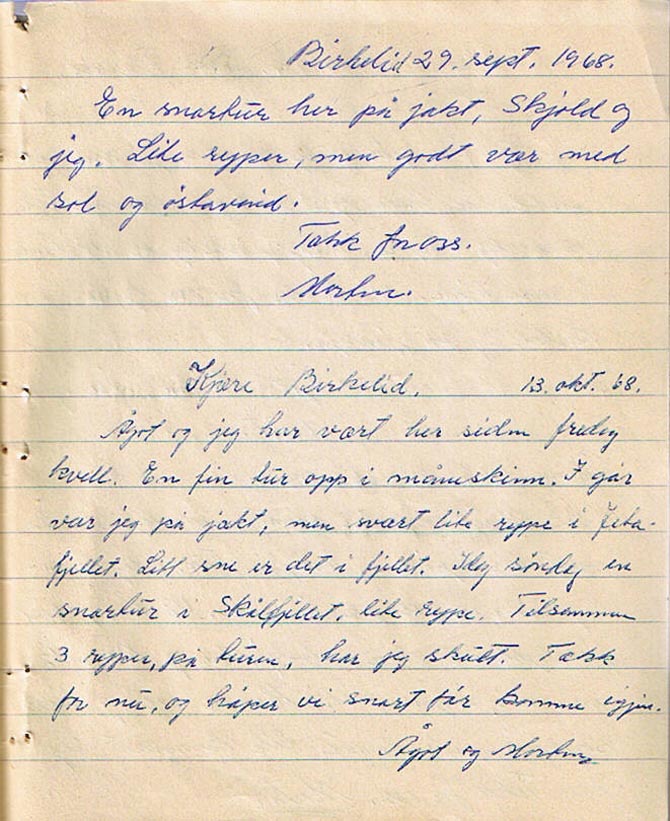 Birkelid 29. sept. 1968.
En snartur her på jakt, Skjold og
jeg. Lite ryper, men godt vær med
sol og østavind.
Takk for oss.
Morten.
Kjære Birkelid. 13. okt. 68.
Ågot og jeg har vært her siden fredag
kvell. En fin tur opp i måneskinn. I går
var jeg på jakt, men svært lite rype i
fjellet. Litt sne er det i fjellet. Idag søndag en
snartur i Skålfjellet, lite rype. Tilsammen
3 ryper, på turen, har jeg skutt. Takk
for nu, og håper vi snart får komme igjen.
Ågot og Morten